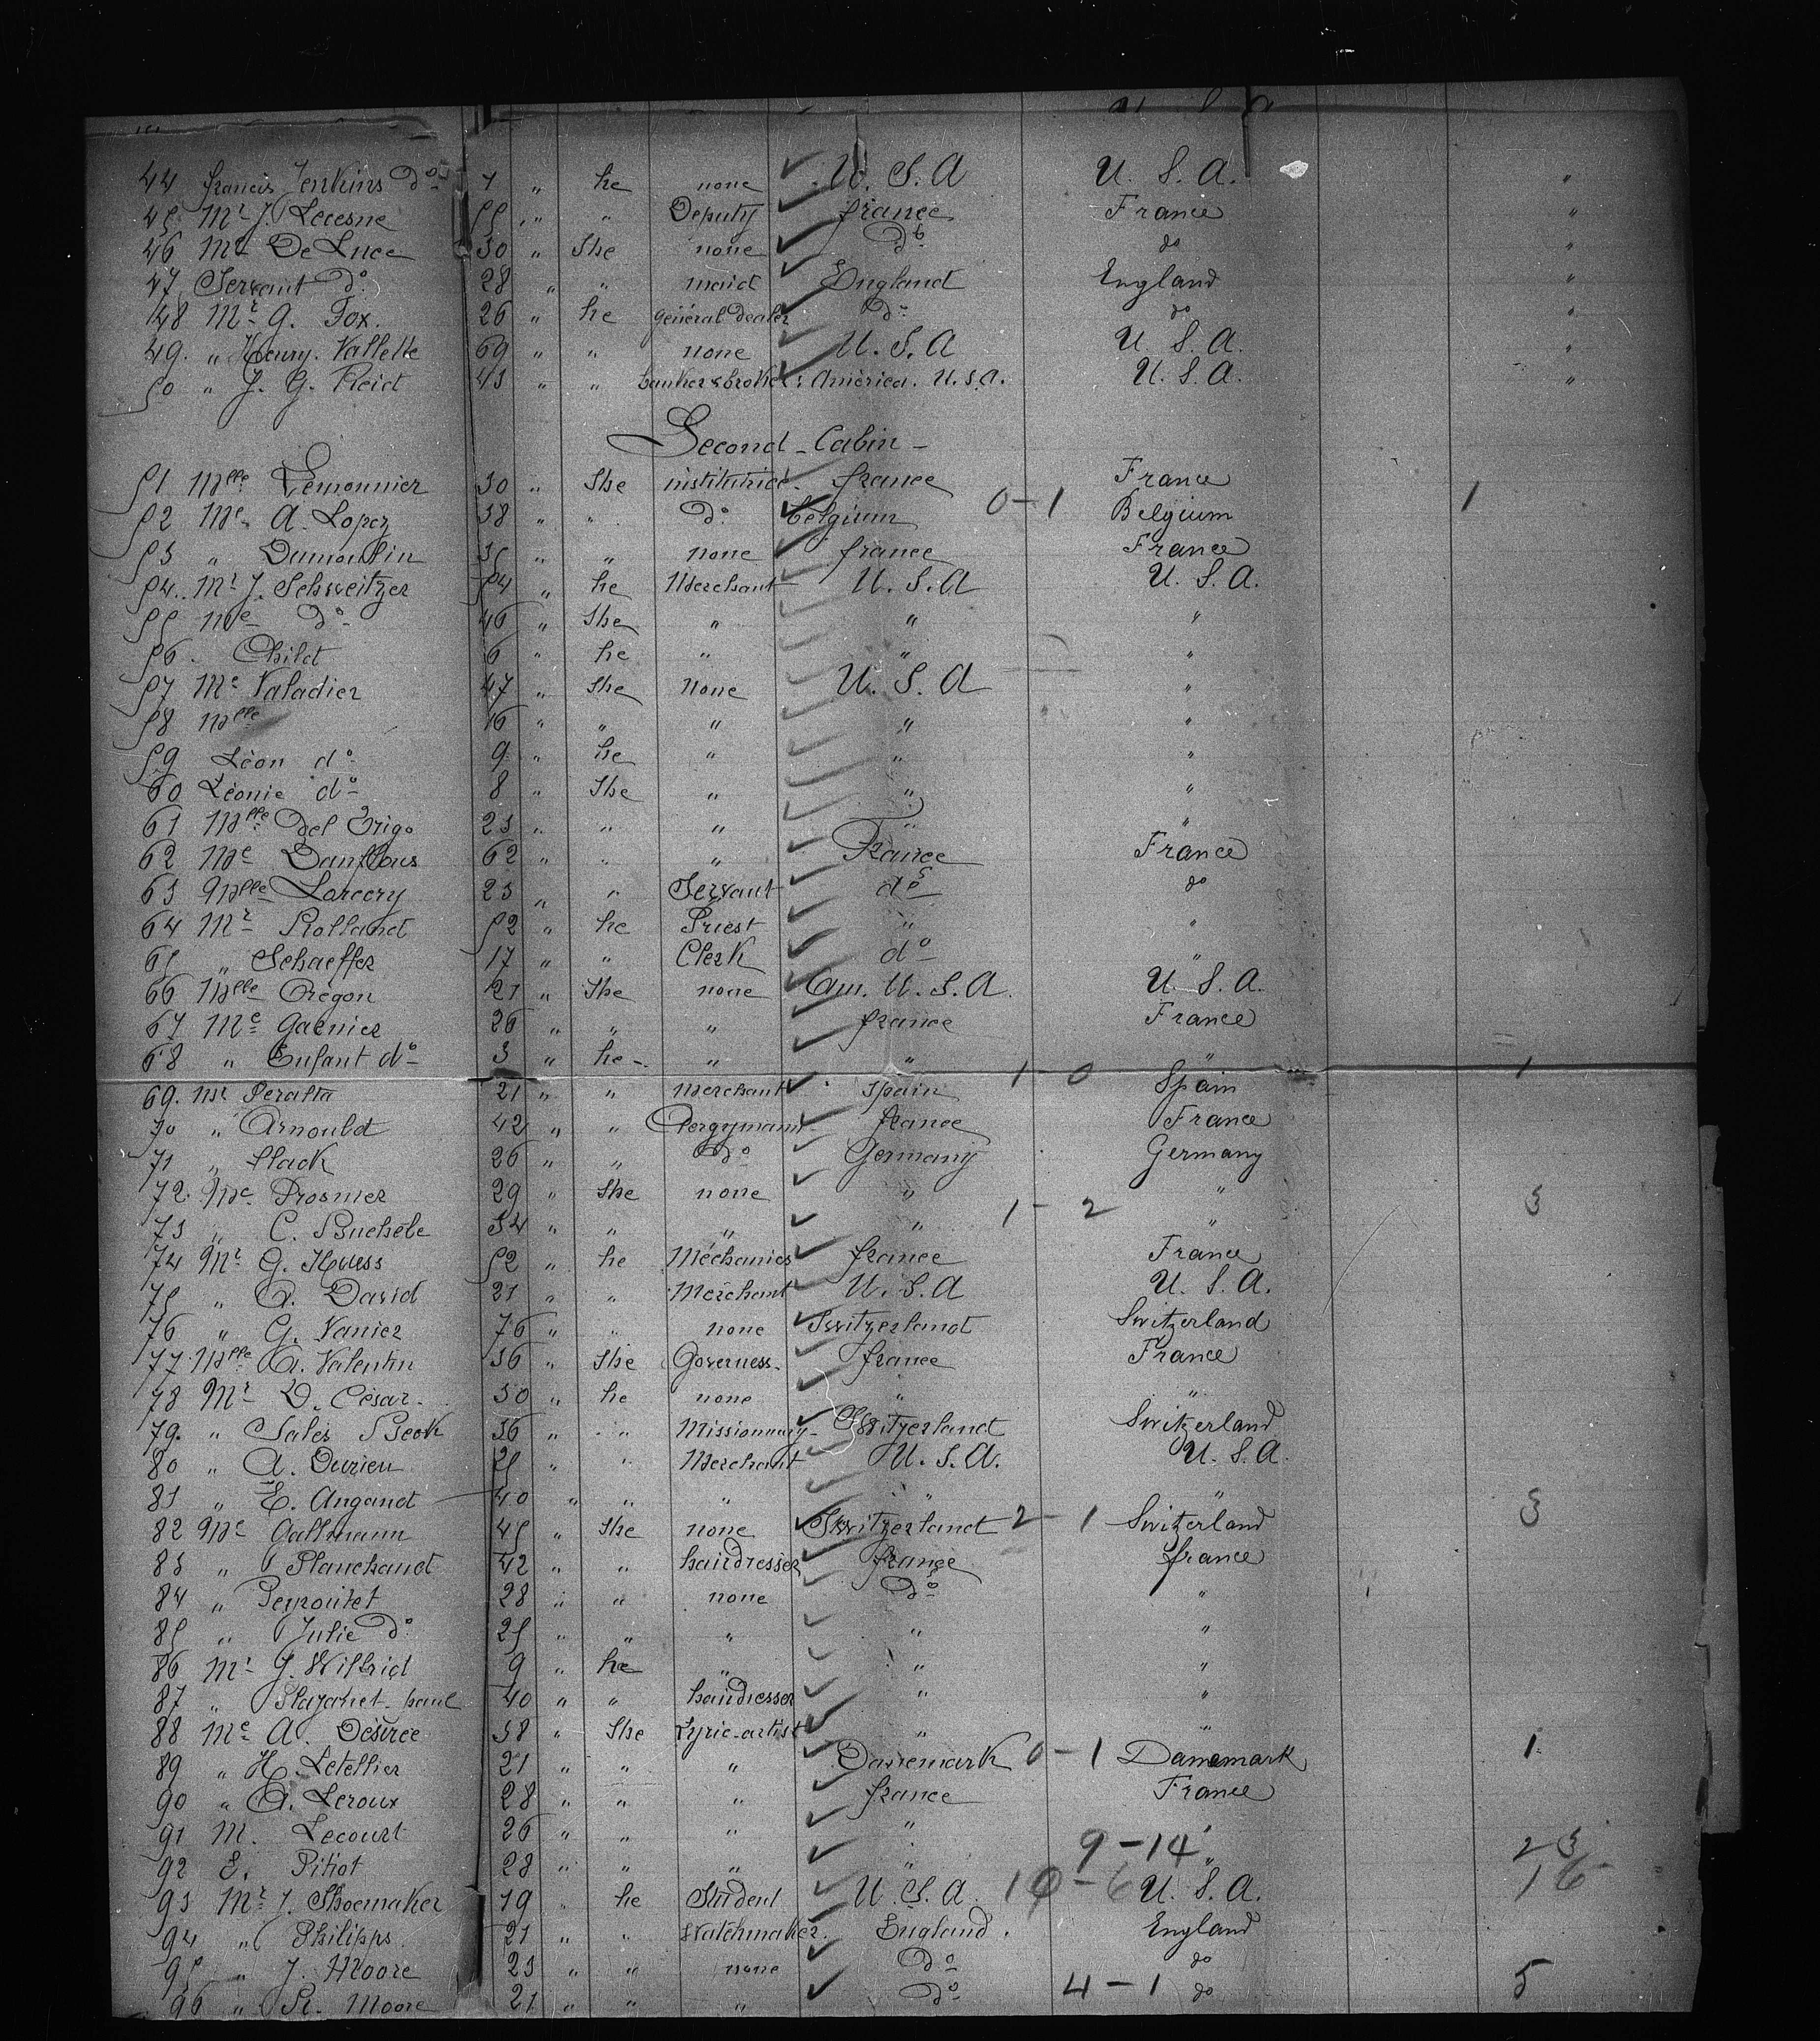 U. S. A
44 francis Jenkins do 7 " he none U. S. A U. S. A. "
45 Mr J. Lecesne 55 " " Deputy france France "
46 Me De Luce 30 " She none do do "
47 Servant do 28 " " maid England England "
48 Mr G. Fox. 26 " he général dealer do do "
49. " Henry. Vallette 69 " " none U. S. A U. S. A. "
50 " J. G. Reid 43 " " banker & broker América. U. S. A. U. S. A. "
Second - Cabin -
51 Mlle Lemonnier 30 " She institutrice france France
0-1 1
52 Me A. Lopez 38 " " do belgium Belgium
53 " Dumoulin 35 " " none france France
54. Mr J. Schweitzer 54 " he Merchant U. S. A U. S. A.
55 Me do 46 " She " " "
56. Child 6 " he " " "
57 Me Valadier 47 " She None U. S. A "
58 Mlle 16 " " " " "
59 Léon do 9 " he " " "
60 Léonie do 8 " She " " "
61 Mlle Del Trigo 23 " " " " "
62 Me Danflous 62 " " " France France
63 Mlle Larcery 23 " " Servant do do
64 Mr Rolland 52 " he Priest " "
65 " Schaeffer 17 " " Clerk do "
66 Mlle Orégon 21 " She none Am. U. S. A. U. S. A.
67 Me Garnier 26 " " " france France
68 " Enfant do 3 " he - " " "
1-0 1
69. Mr Peralta 21 " " Merchant Spain Spain
70 " Arnould 42 " " Clergymann france France
71 " Slack 26 " " do Germany Germany
72. Me Prosmer 29 " She none " "
1-2 3
73 " C. Buchele 34 " " " " "
74 Mr G. Hauss 52 " he Méchanics france France
75 " A. David 21 " " Merchant U. S. A U. S. A.
76 " G. Vanier 76 " " none Switzerland Switzerland
77. Mlle A. Valentin 36 " She Governess france France
78 Mr D. César. 30 " he none " "
79. " Salès Beok 36 " " Missionnary Switzerland Switzerland
80 " A. Durieu 25 " " Merchant U. S. A. U. S. A.
81 " E. Angand 40 " " " " "
82 Me Gallmann 45 " She none Switzerland 2-1 Switzerland 3
83 " Planchand 42 " " hairdresser france france
84 " Peyroutet 28 " " none do "
85 " Julie do 25 " " " " "
86 Mr J. Wilfrid 9 " he " " "
87 " Plazanet paul 40 " " hairdresser " "
88 Me A. Désirée 38 " She Lyric-artist " "
89 " H. Letellier 21 " " " Danemark 0-1 Danemark 1
90 " A. Leroux 28 " " " france France
91 M. Lecourt 26 " " " " "
9-14 23
92 E. Pitiot 28 " " " " "
93 Mr J. Shoemaker 19 " he Student U. S. A. 10-6 U. S. A. 16
94 " Philipps 21 " " Watchmaker. England. England
95 " J. Moore 23 " " none do do
96 " R. Moore 21 " " " do 4-1 do 5